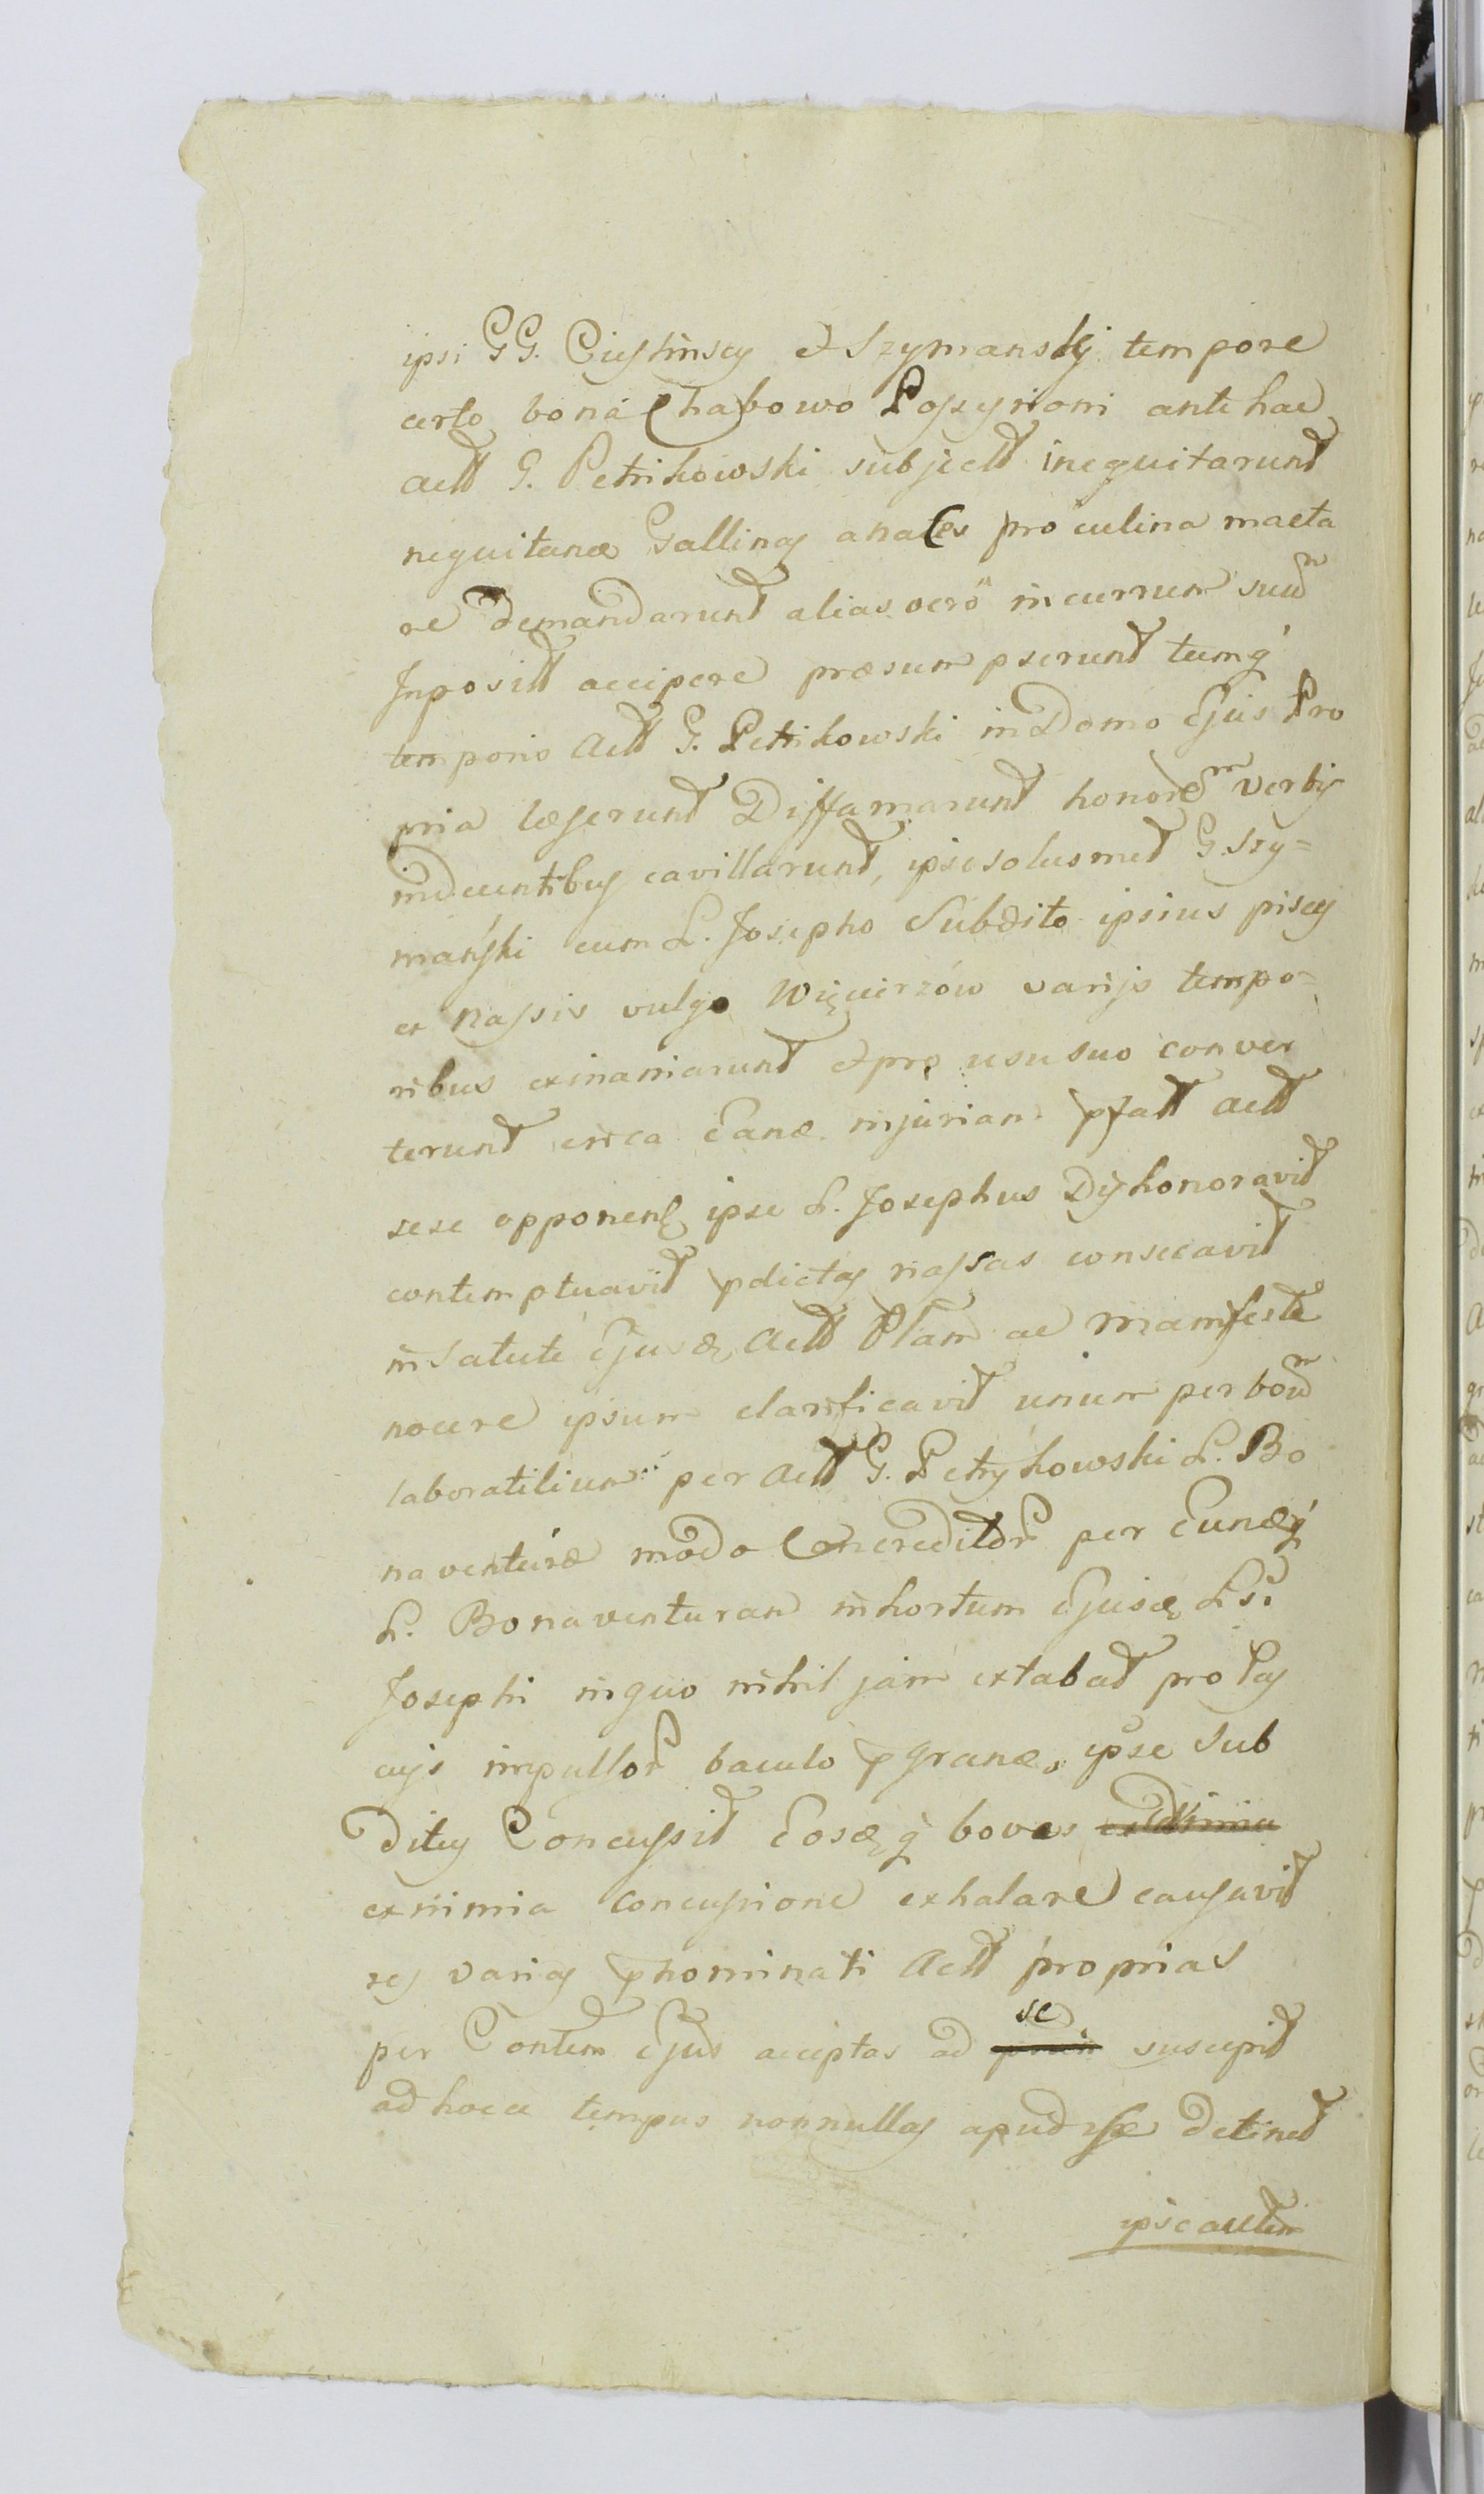 ipsi GG. Ciestinscy et Szymanskj tempore
certo bona Chabowo Possessioni ante hac
actt G. Petrikowski subjectt inequitarunt
nequitanæ Gallinas anates pro culina macta
re demandarunt alias vero in currum suum
Inposittt accipere præsumpserunt tumq́
temporis Actt G. Petrikowski in Domo Ejus Pro
pria læserunt Diffamarunt honorem verbis
indecentibus cavillarunt, ipse solusmet G. Szy=
mański cum L. Josepho Subdito ipsius pisces
ex Nassis vulgo Więcierzów varijs tempo-
ribus exinaniarunt et pro usu suo conver
terunt circa Eand. injuriam pfatt actt
sese opponen. ipse L. Josephus Dishonoravit
contemptuavit pdictas nassas consecavit
in salute Ejusd. Actt Plam ac manifeste
nocere ipsum clarificavit unum per boum
laboratilium per Actt G. Petrykowski L. Bo
naventuræ modo Concreditor per Eundq́
L. Bonaventuram in hortum Ejusd. L si
Josephi in quo nihil jam extabat pro Pas
cuis impulsor baculo pgrand. ipse Sub
ditus Concussit Eosd. q́ boves
ex nimia concussione exhalare causavit
res varias pnominati Actt proprias
per Contem Ejus acceptas ad se suscepit
ad hocce tempus nonnullas apud sse detinet
ipse autem